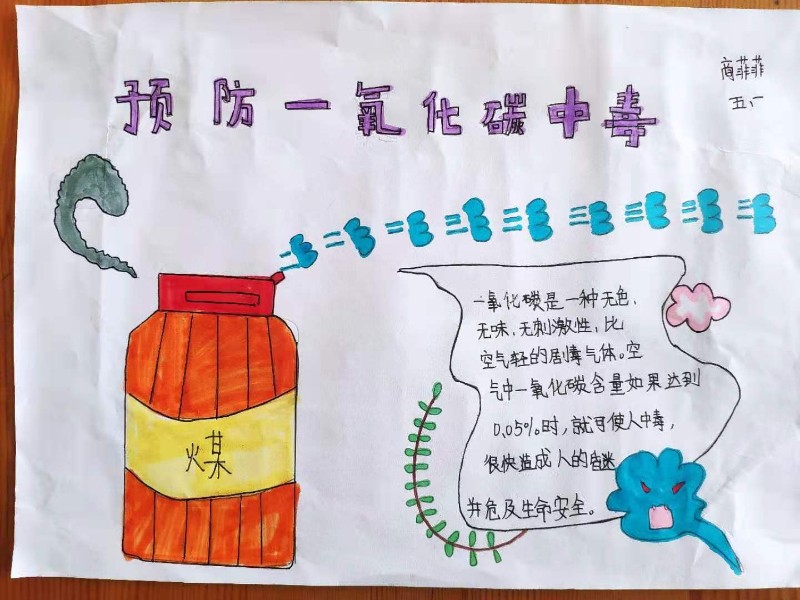 预防一氧化碳中毒
商菲菲
五、
煤
一氧化碳是一种无色、
无味、无刺激性,比
空气轻的剧毒气体。空
气中一氧化碳含量如果达到
0.05%时,就可使人中毒,
很快造成人的昏迷
并危及生命安全。